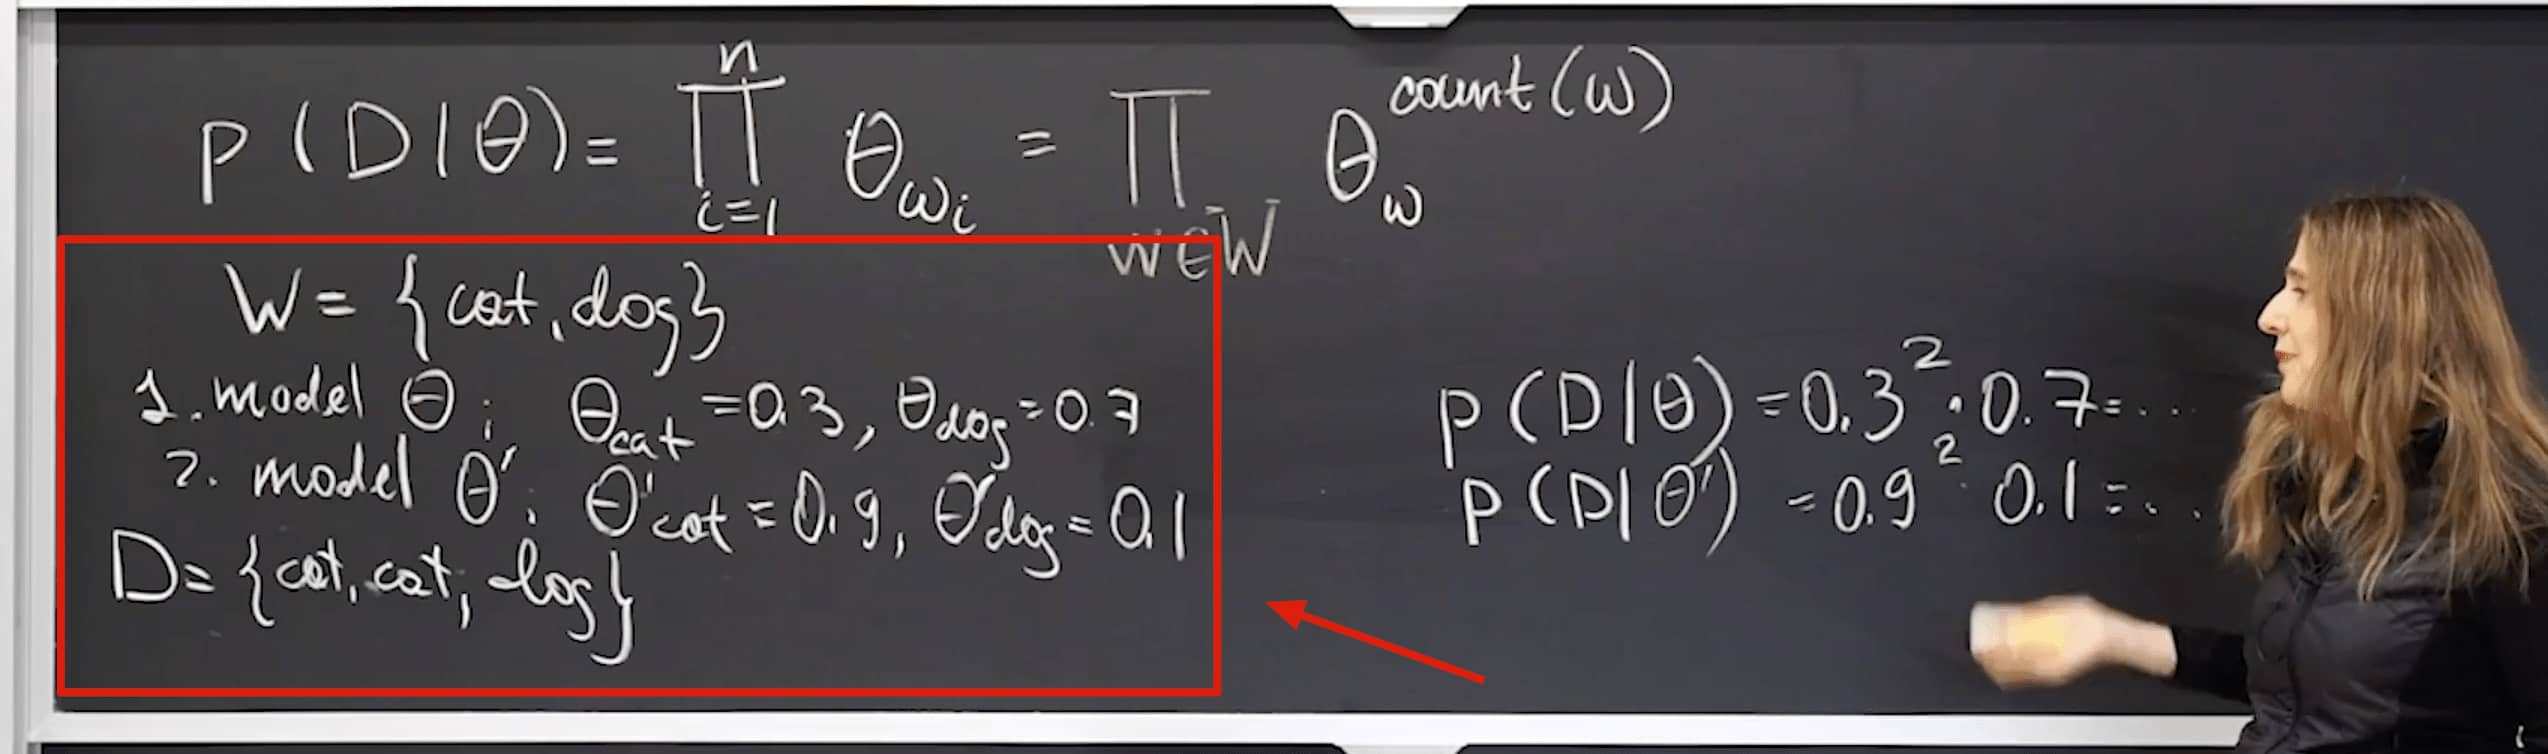 p(D|θ) = ∏_{i=1}^{n} θ_{w_i} = ∏_{w∈W} θ_w^{count(w)}
W = {cat, dog}
1. model θ: θ_cat = 0.3, θ_dog = 0.7
2. model θ': θ'_cat = 0.9, θ'_dog = 0.1
D = {cat, cat, dog}
p(D|θ) = 0.3² · 0.7 = ...
p(D|θ') = 0.9² · 0.1 = ...